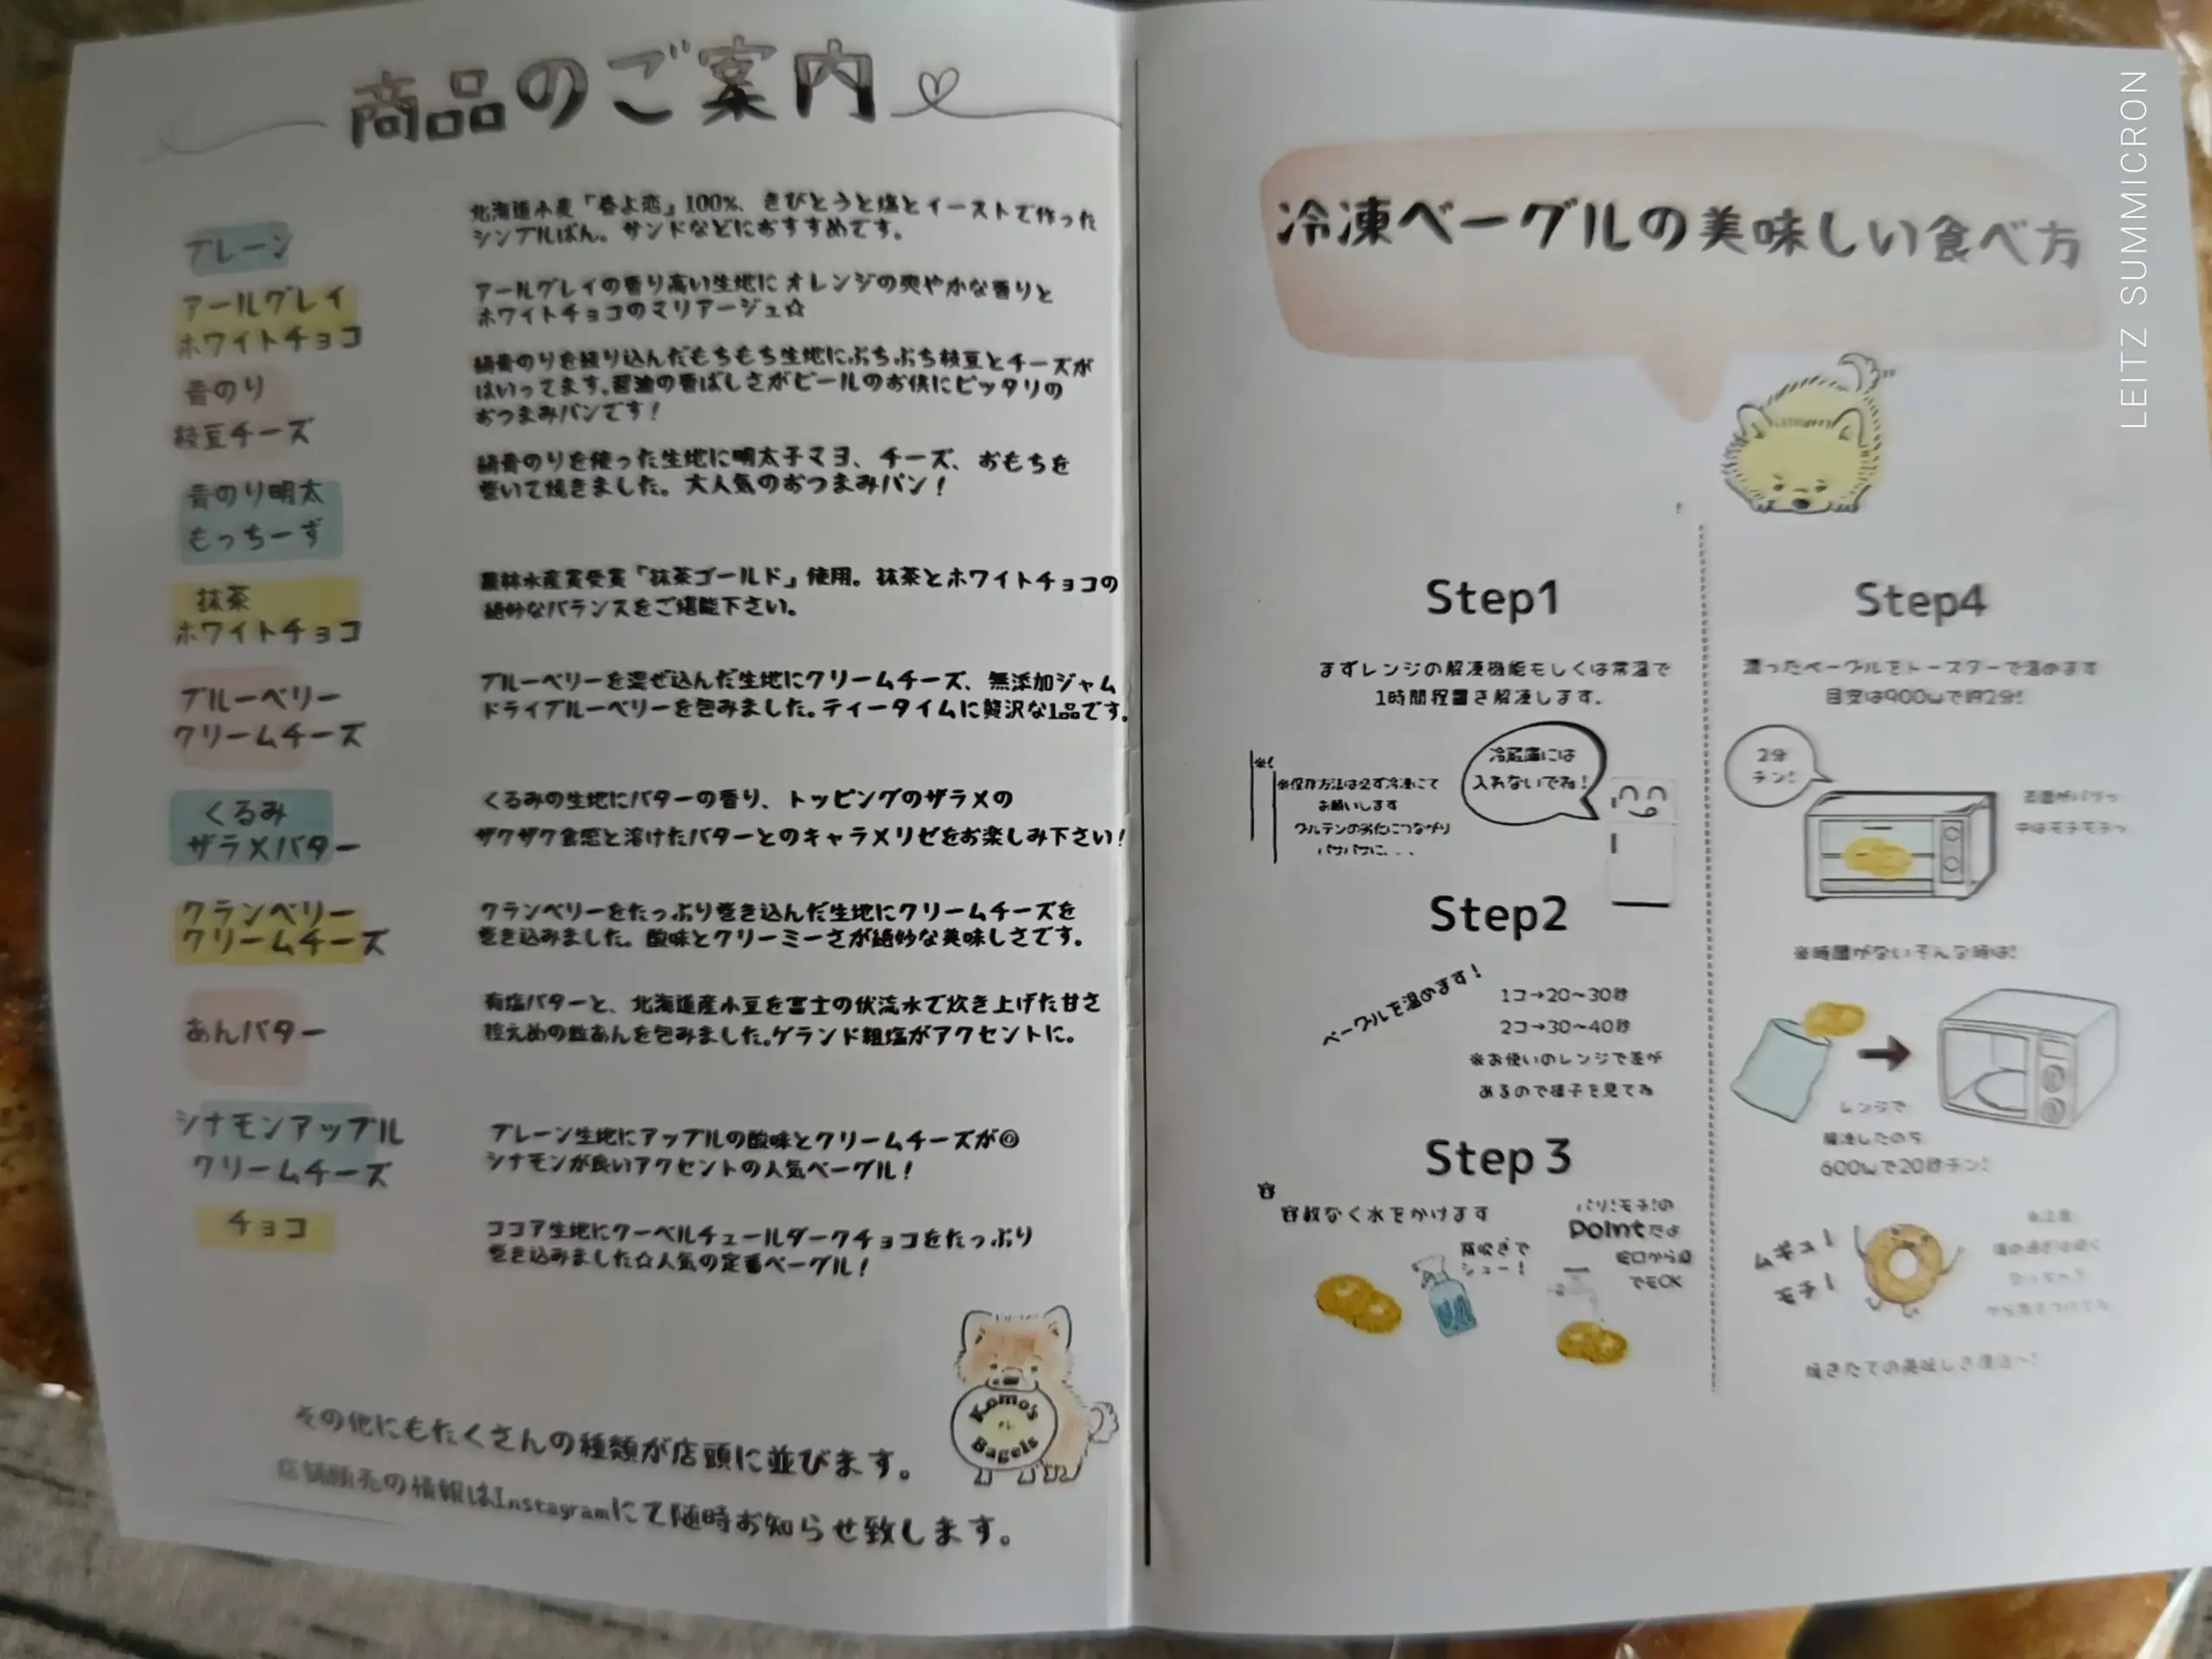 商品のご案内
プレーン
北海道小麦「春よ恋」100%、きびとうと塩とイーストで作った
シンプルぱん。サンドなどにおすすめです。
アールグレイ
ホワイトチョコ
アールグレイの香り高い生地にオレンジの爽やかな香りと
ホワイトチョコのマリアージュ☆
青のり
枝豆チーズ
絹青のりを練り込んだもちもち生地にぷちぷち枝豆とチーズが
はいってます。醤油の香ばしさがビールのお供にピッタリの
おつまみパンです!
青のり明太
もっちーず
絹青のりを使った生地に明太子マヨ、チーズ、おもちを
巻いて焼きました。大人気のおつまみパン!
抹茶
ホワイトチョコ
農林水産賞受賞「抹茶ゴールド」使用。抹茶とホワイトチョコの
絶妙なバランスをご堪能下さい。
ブルーベリー
クリームチーズ
ブルーベリーを混ぜ込んだ生地にクリームチーズ、無添加ジャム
ドライブルーベリーを包みました。ティータイムに贅沢な1品です。
くるみ
ザラメバター
くるみの生地にバターの香り、トッピングのザラメの
ザクザク食感と溶けたバターとのキャラメリゼをお楽しみ下さい!
クランベリー
クリームチーズ
クランベリーをたっぷり巻き込んだ生地にクリームチーズを
巻き込みました。酸味とクリーミーさが絶妙な美味しさです。
あんバター
有塩バターと、北海道産小豆を富士の伏流水で炊き上げた甘さ
控えめの粒あんを包みました。ゲランド粗塩がアクセントに。
シナモンアップル
クリームチーズ
プレーン生地にアップルの酸味とクリームチーズが◎
シナモンが良いアクセントの人気ベーグル!
チョコ
ココア生地にクーベルチュールダークチョコをたっぷり
巻き込みました☆人気の定番ベーグル!
Komo's
Bagels
その他にもたくさんの種類が店頭に並びます。
店舗販売の情報はInstagramにて随時お知らせ致します。
冷凍ベーグルの美味しい食べ方
Step1
まずレンジの解凍機能もしくは常温で
1時間程置き解凍します。
※保存方法は必ず冷凍にて
お願いします
グルテンの劣化につながり
パサパサに...
冷蔵庫には
入れないでね!
Step2
ベーグルを温めます!
1コ→20~30秒
2コ→30~40秒
※お使いのレンジで差が
あるので様子を見てね
Step3
容赦なく水をかけます
霧吹きで
シュー!
パリ!モチ!の
Pointだよ
蛇口から直
でもOK
Step4
湿ったベーグルをトースターで温めます
目安は900wで約2分!
2分
チン!
表面がパリッ
中はモチモチっ
※時間がないそんな時は!
レンジで
解凍したのち
600wで20秒チン!
ムギュ!
モチ!
焼きたての美味しさ復活~!
LEITZ SUMMICRON